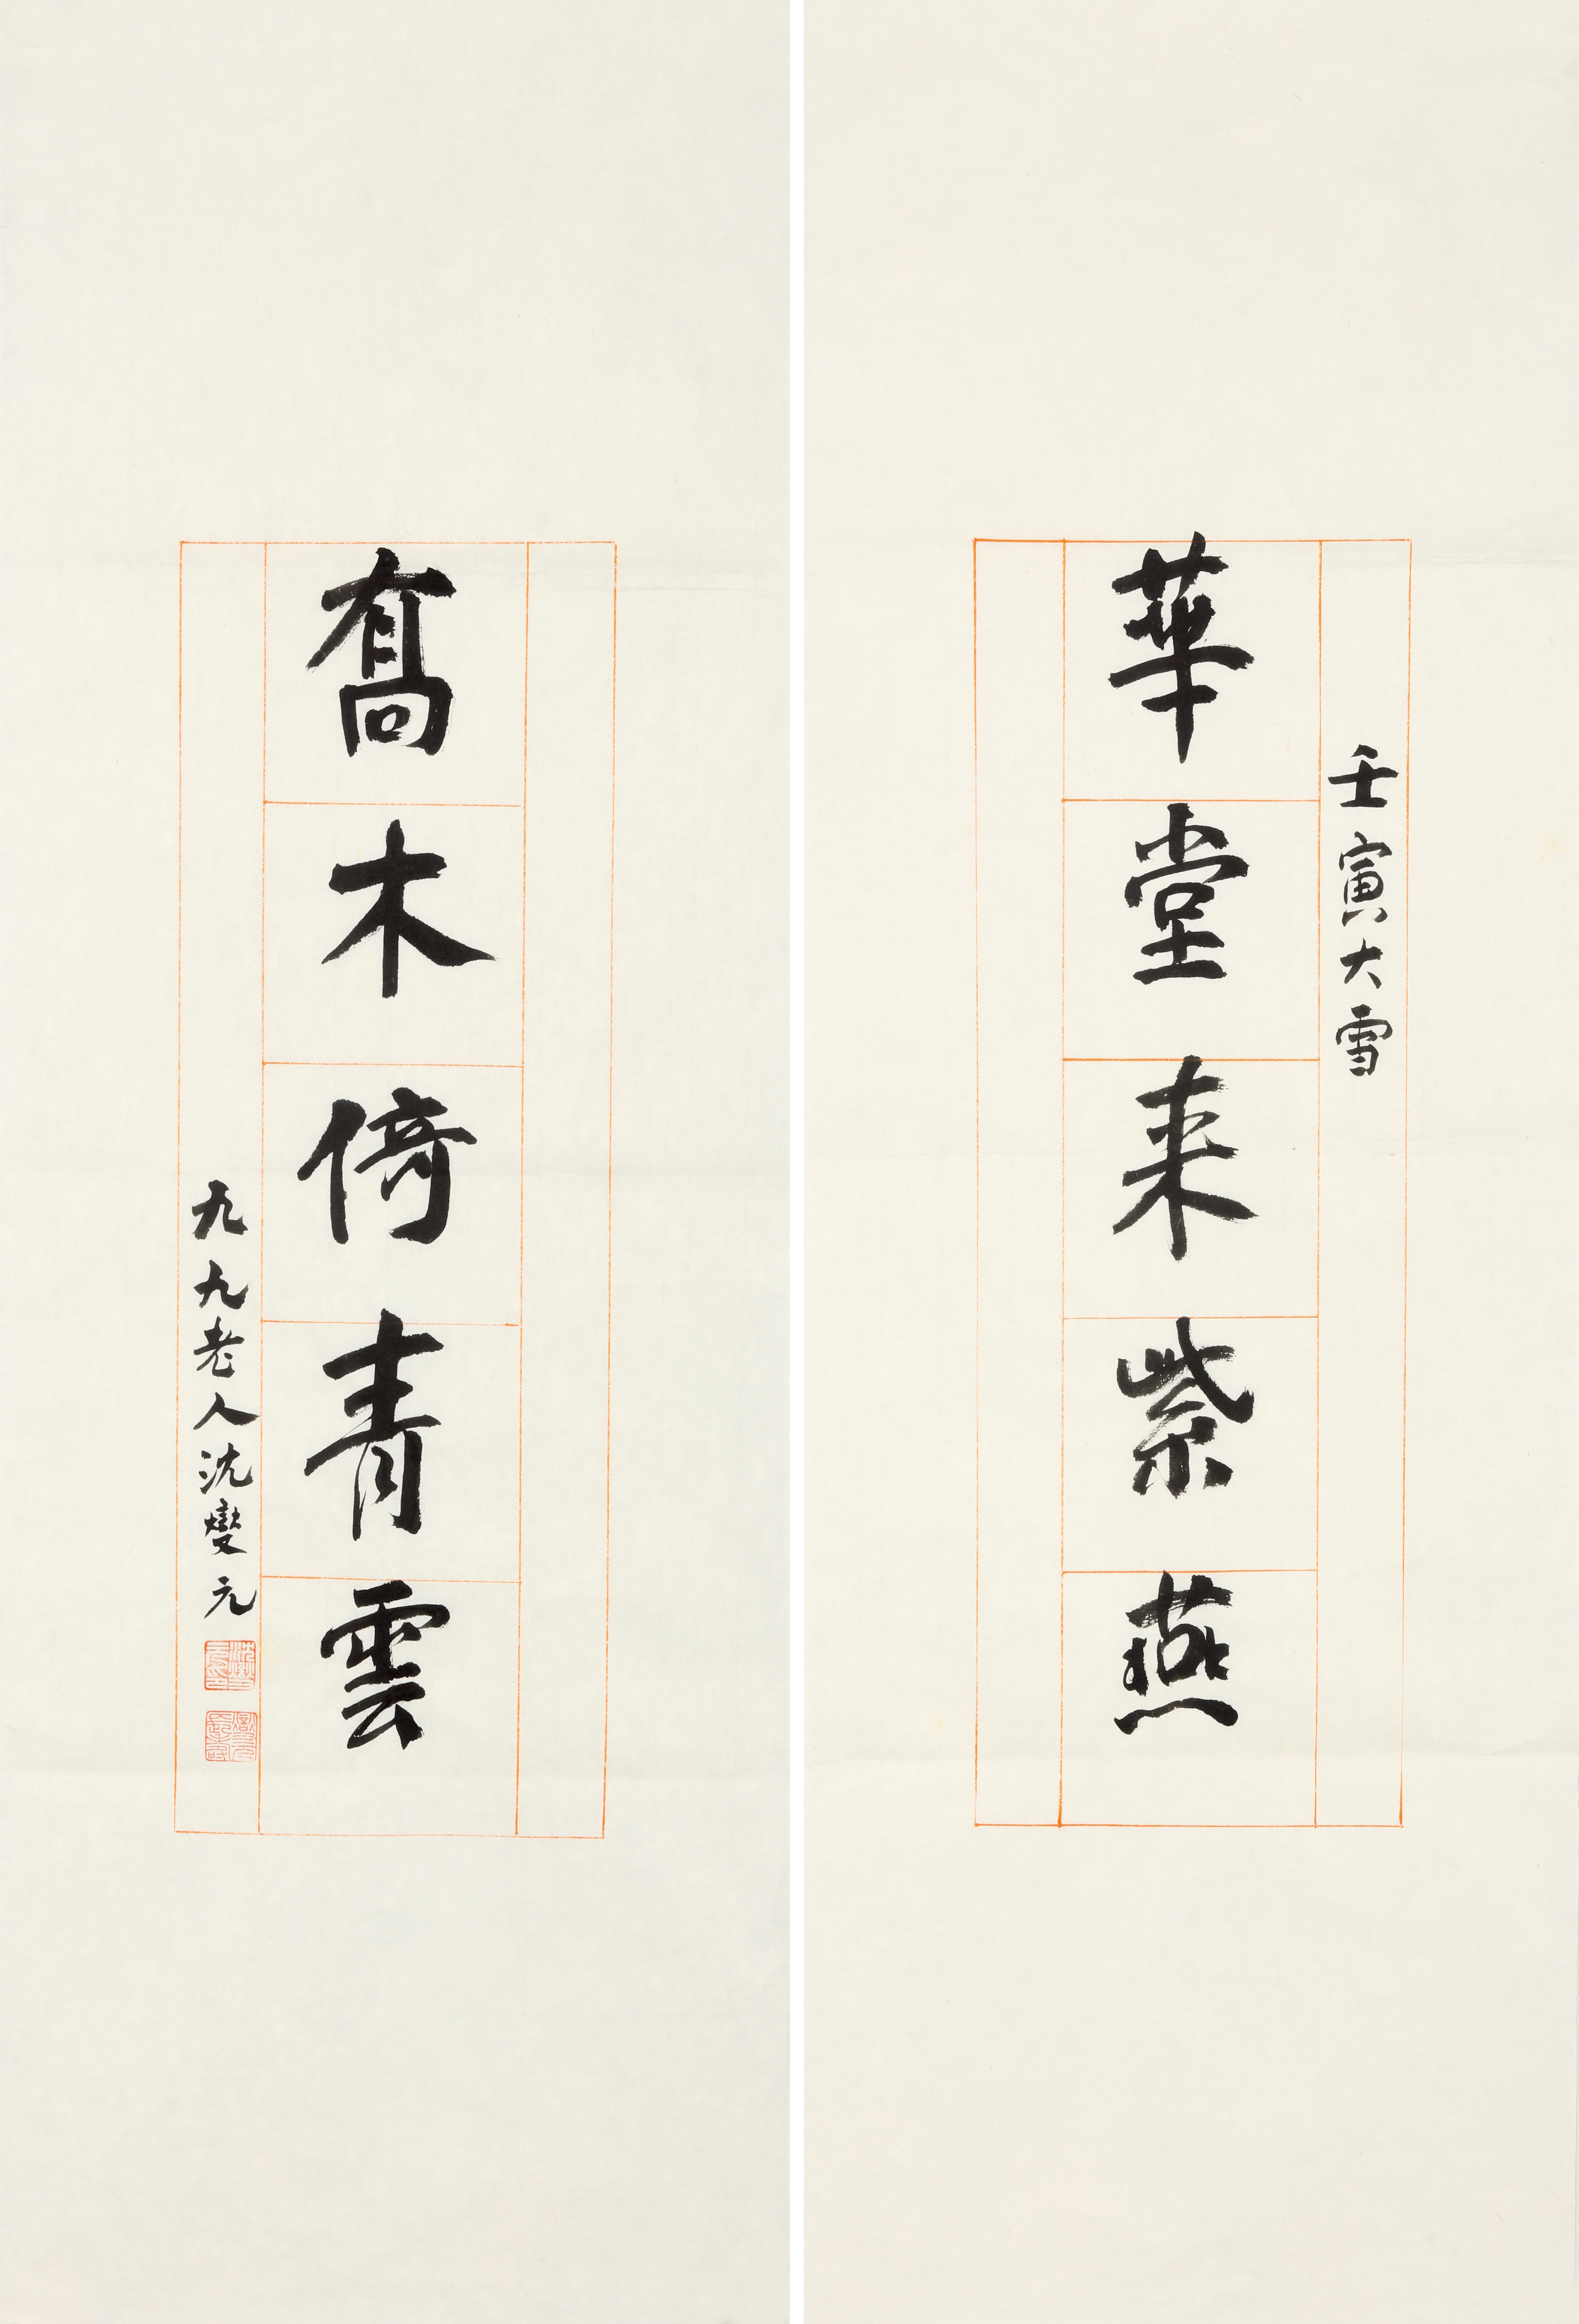 壬寅大雪
華堂来紫燕
喬木倚青雲
九九老人沈燮元